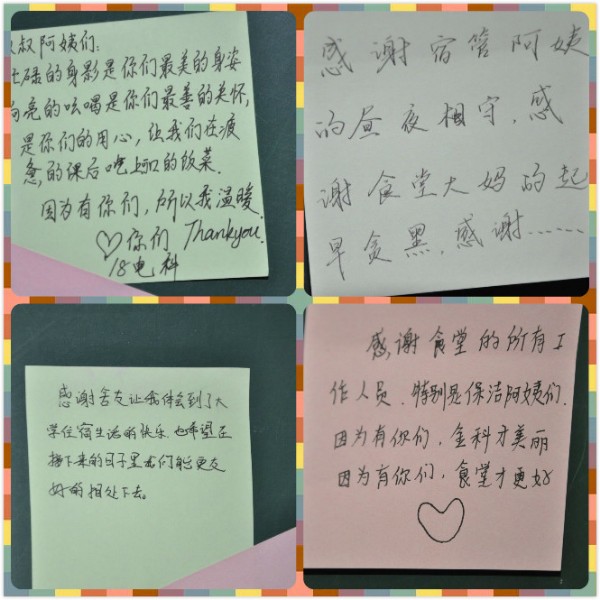 叔阿姨们:
碌的身影是你们最美的身姿
亮的吆喝是你们最善的关怀,
是你们的用心, 让我们在疲
惫的课后吃上可口的饭菜.
因为有你们, 所以我温暖.
♡你们 Thankyou.
18电科
感谢宿管阿姨
的昼夜相守,感
谢食堂大妈的起
早贪黑,感谢……
感谢舍友让我体会到了大
学住宿生活的快乐,也希望在
接下来的日子里我们能更友
好的相处下去。
感谢食堂的所有工
作人员.特别是保洁阿姨们.
因为有你们,金科才美丽
因为有你们,食堂才更好